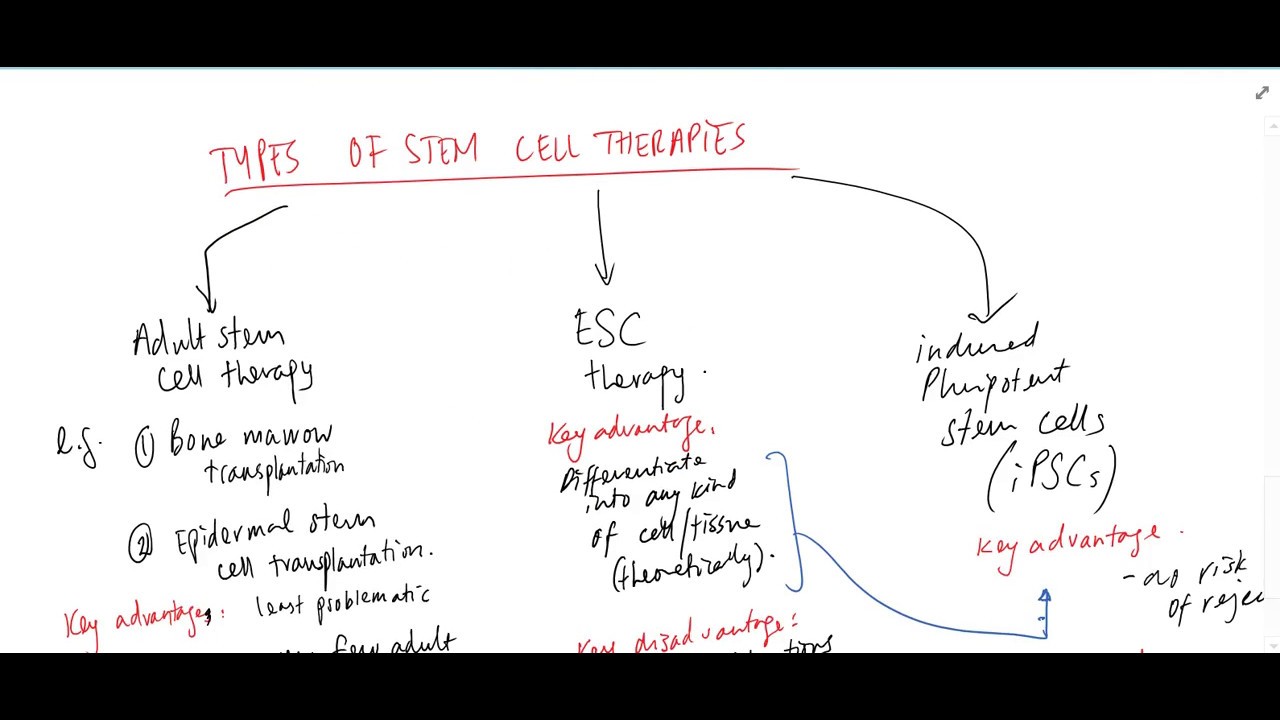 TYPES OF STEM CELL THERAPIES
Adult stem
cell therapy
e.g. ① Bone marrow
transplantation
② Epidermal stem
cell transplantation.
Key advantages: least problematic
few adult
ESC
therapy.
Key advantage:
Differentiate
into any kind
of cell/tissue
(theoretically).
Key disadvantage:
induced
Pluripotent
stem cells
(iPSCs)
Key advantage.
- no risk
of rejec